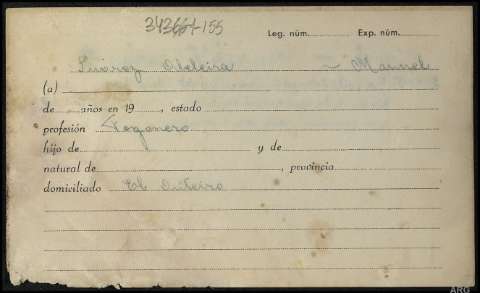 343664-155
Leg. núm. Exp. núm.
Suárez Obeleira ~ Manuel
(a)
de años en 19 , estado
profesión Fogonero
hijo de y de
natural de , provincia
domiciliado El Outeiro
ARG